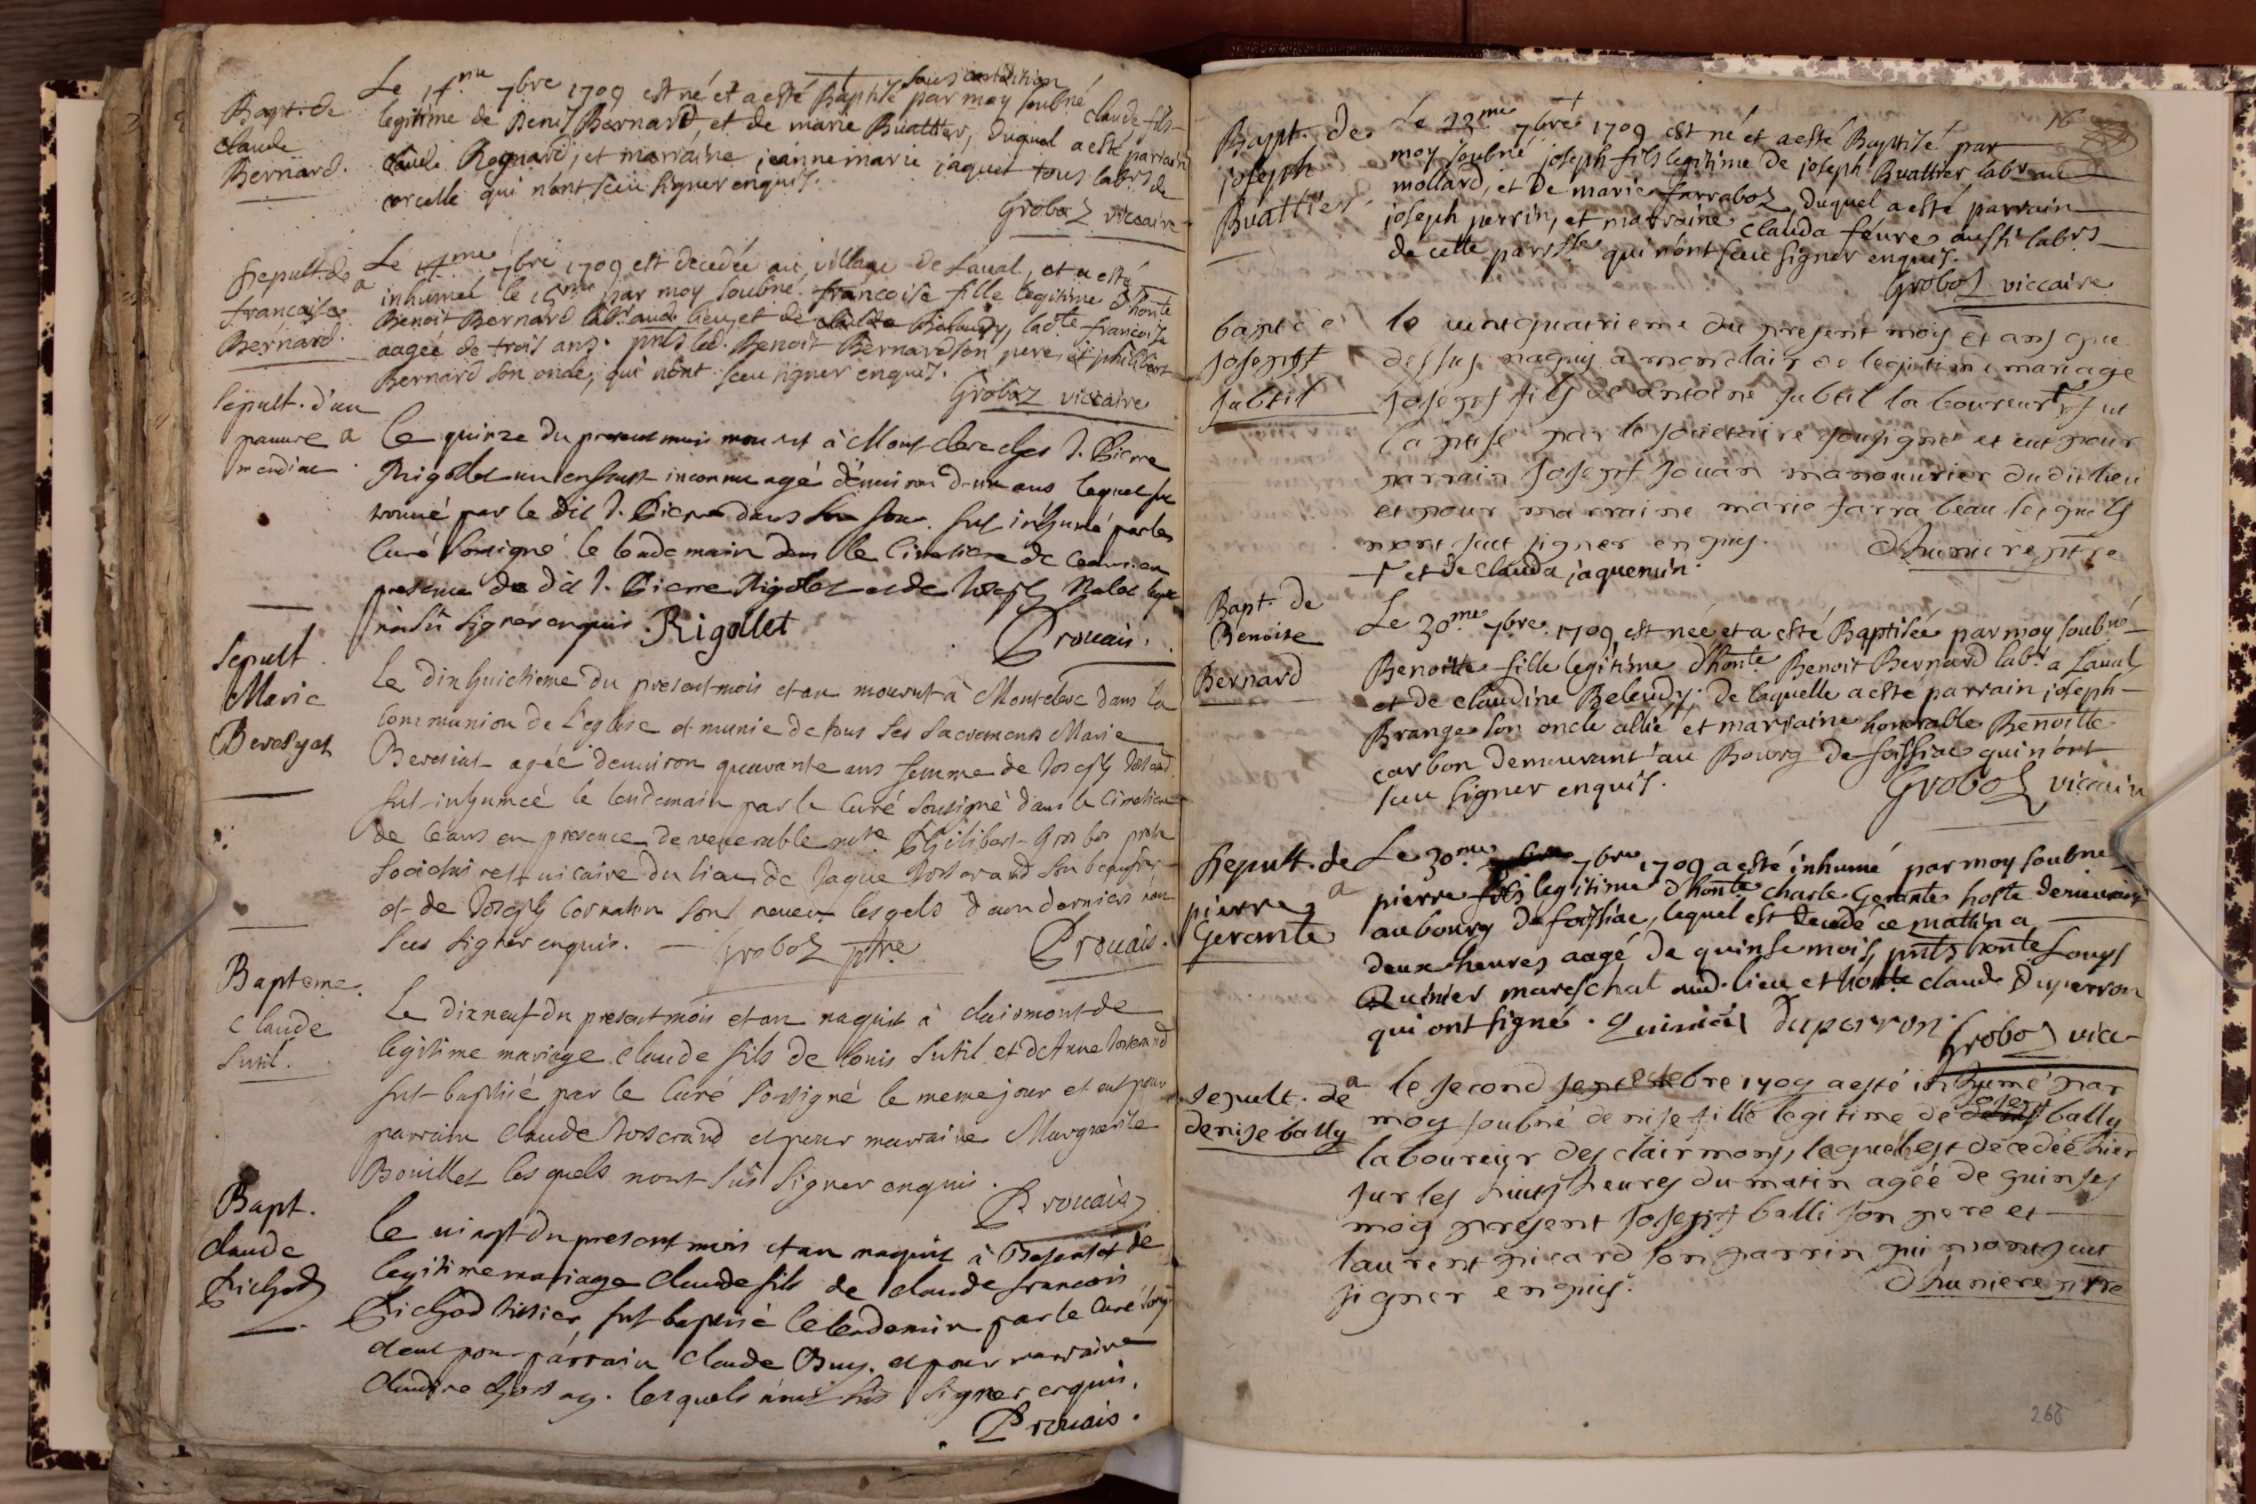 Bapt. de
claude
Bernard.
sous condition
Le 7bre 1709 est né et a esté Baptisé par moy soubné claude fils
legitime de Denis Bernard, et de marie Buattier, duquel a esté parrain
claude Rognard, et marraine jeanne marie jaquet tous labrs de
corcelle qui n'ont sceu signer enquis.
Groboz viccaire
Sepult. de a
francoise
Bernard.
Le 7bre 1709 est decedée au village de Laual, et a esté
inhumée le 15me par moy soubné francoise fille legitime d'honte
Benoit Bernard labr aud. lieu, et de Beleudy, ladte francoise
aagée de trois ans. pnts led. Benoit Bernard son pere, et philibert
Bernard son oncle, qui n'ont sceu signer enquis.
Groboz viccaire
Sepult. d'un
pauure a
mendiant.
Le quinze du present mois mourut à Mont clerc chez Sr. Pierre
Rigollet un enfant inconnu agé d'enuiron d'un ans lequel fut
trouué par le dit Sr. Pierre dans son four. fut inhumé par le
Curé sousigné le lendemain dans le Cimetiere de ceans en
presence du dit Sr. Pierre Rigollet et de Joseph
n'a sû signer enquis. Rigollet
Prouais.
Sepult.
Marie
Beresyat
Le dix huictieme du present mois et an mourut à Montclerc dans la
Communion de l'eglise et munie de tous ses sacremens Marie
Beresiat agée d'enuiron quarante ans femme de Joseph Josserand.
fut inhumée le lendemain par le Curé sousigné dans le Cimetiere
de ceans en presence de venerable mre Philibert Groboz pretre
Societaire et uicaire du lieu de Jaque Josserand son beaufrere
et de Joseph Cornaton son neueu lesquels deux derniers n'ont
sceu signer enquis. Groboz ptre Prouais.
Bapteme
Claude
Sutil.
Le dixneuf du present mois et an naquit à clairmont de
legitime mariage claude fils de louis Sutil et d'Anne Josserand
fut baptisé par le Curé sousigné le meme jour et eut pour
parrain claude Josserand et pour marraine Marguerite
Bouillet lesquels n'ont sûs signer enquis.
Prouais
Bapt.
claude
Pichod
Le uingt du present mois et an naquit à de
legitime mariage claude fils de claude francois
Pichod fut baptisé le lendemain par le Curé sousig.
et eut pour parrain claude Buy. et pour marraine
claudine lesquels n'ont sûs signer enquis.
Prouais.
16
Bapt. de
joseph
Buattier
Le 23me 7bre 1709 est né et a esté Baptisé par
moy soubné joseph fils legitime de joseph Buattier labr au
mollard, et de marie farraboz, duquel a esté parrain
joseph perrin, et marraine clauda feure aussi labrs
de cette parsse qui n'ont sceu signer enquis.
Groboz viccaire
bapt de
Joseph
Subtil
le uint quatrieme du present mois et ans que
dessus naquis a monclair de legitime mariage
Joseph fils de Antoine Subtil laboureur + fut
baptisé par le societaire sousigné et eut pour
parrain Joseph Jouan manouurier dudit lieu
et pour marraine marie farrabeau lesquels
n'ont sceut signer enquis. Dhumiere ptre
+ et de clauda jaquemin.
Bapt. de
Benoite
Bernard
Le 30me 7bre 1709 est née et a esté Baptisée par moy soubné
Benoitte fille legitime d'honte Benoit Bernard labr a Laual
et de claudine Beleudy, de laquelle a esté parrain joseph
Brange son oncle allié et marraine honorable Benoitte
carbon demeurant au Bourg de foissiac qui n'ont
sceu signer enquis. Groboz viccaire
Sepult. de
pierre a
Gerante
Le 30me 7bre 1709 a esté inhumé par moy soubné
pierre fils legitime d'honte charle Gerante hoste demeurant
au bourg de foissiac, lequel est decedé ce matin a
deux heures aagé de quinse mois, pnts honte Louys
Quinier mareschal aud. lieu et honte claude Duperron
qui ont signé. Quinier Duperron. Groboz vicc
Sepult. de a
denise bally
le second octobre 1709 a esté inhumé par
moy soubné denise fille legitime de joseph bally
laboureur des clairmons, lequel est décedée hier
sur les huits heures du matin agée de quinses
mois present Joseph balli son pere et
laurent picard son parrin qui n'ont sceut
signer enquis. Dhumiere ptre
266